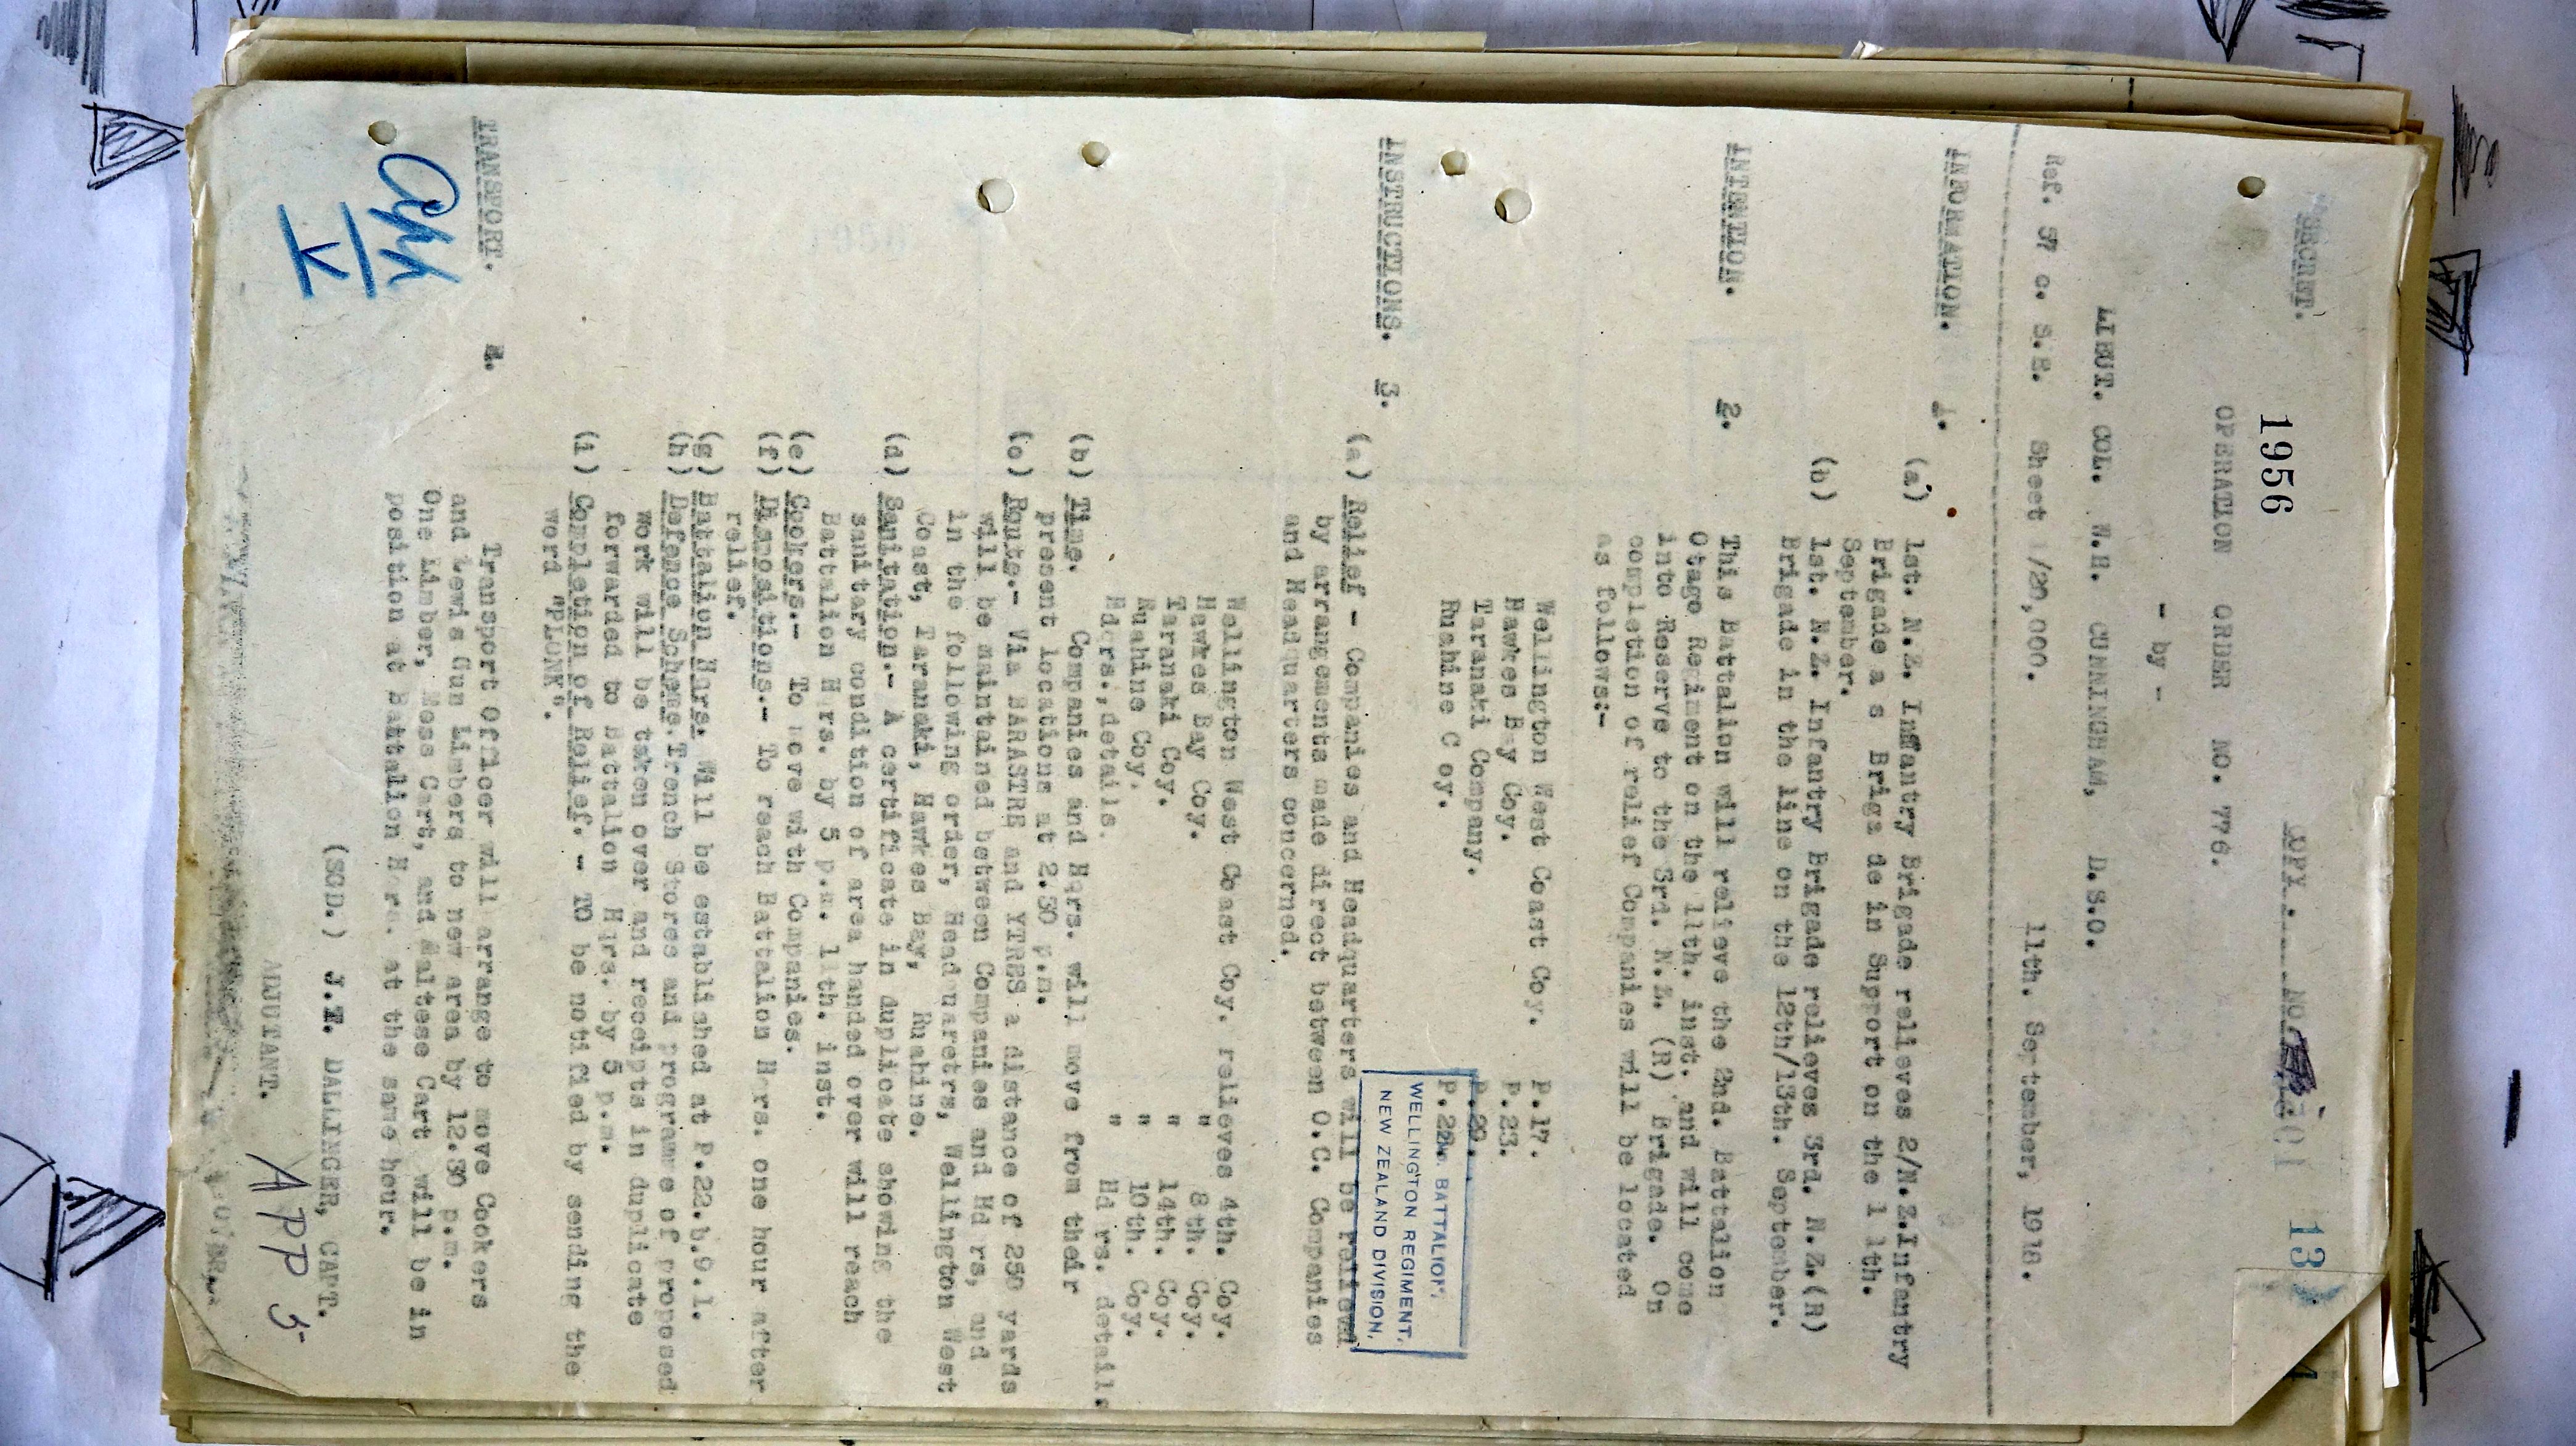 SECRET.
1956
COPY. NO.
13
OPERATION ORDER NO. 776.
- by -
LIEUT. COL. W.H. CUNNINGHAM, D.S.O.
Ref. 57 c. S.E. Sheet 1/20,000. 11th. September, 1918.
INFORMATION. 1. (a) 1st. N.Z. Infantry Brigade relieves 2/N.Z.Infantry
Brigade a s Briga de in Support on the 1 1th.
September.
(b) 1st. N.Z. Infantry Brigade relieves 3rd. N.Z.(R)
Brigade in the line on the 12th/13th. September.
INTENTION. 2. This Battalion will relieve the 2nd. Battalion
Otago Regiment on the 11th. inst. and will come
into Reserve to the 3rd. N.Z. (R) Brigade. On
completion of relief Companies will be located
as follows:-
Wellington West Coast Coy. P.17.
Hawkes Bay Coy. P.23.
Taranaki Company. P.29.
Ruahine C oy. P.22
BATTALION,
WELLINGTON REGIMENT,
NEW ZEALAND DIVISION,
INSTRUCTIONS. 3. (a) Relief - Companies and Headquarters will be relieved
by arrangements made direct between O.C. Companies
and Headquarters concerned.
Wellington West Coast Coy. relieves 4th. Coy.
Hawkes Bay Coy. " 8th. Coy.
Taranaki Coy. " 14th. Coy.
Ruahine Coy. " 10th. Coy.
Hdqrs.,details. " Hdqrs. details
(b) Time. Companies and Hqrs. will move from their
present locations at 2.30 p.m.
(c) Route.- Via BARASTRE and YTRES a distance of 250 yards
will be maintained between Companies and Hdqrs, and
in the following order, Headquaretrs, Wellington West
Coast, Taranaki, Hawkes Bay, Ruahine.
(d) Sanitation.- A certificate in duplicate showing the
sanitary condition of area handed over will reach
Battalion Hqrs. by 5 p.m. 11th. inst.
(e) Cookers.- To move with Companies.
(f) Dispositions.- To reach Battalion Hqrs. one hour after
relief.
(g) Battalion Hqrs. Will be established at P.22.b.9.1.
(h) Defence Scheme.Trench Stores and programme of proposed
work will be taken over and receipts in duplicate
forwarded to Battalion Hqrs. by 5 p.m.
(i) Completion of Relief. - TO be notified by sending the
word "PLONK".
TRANSPORT. 4. Transport Officer will arrange to move Cookers
and Lewis Gun Limbers to new area by 12.30 p.m.
One Limber, Mess Cart, and Maltese Cart will be in
position at Battalion Hqrs. at the same hour.
(SGD.) J.T. DALLINGER, CAPT.
ADJUTANT.
APP 5